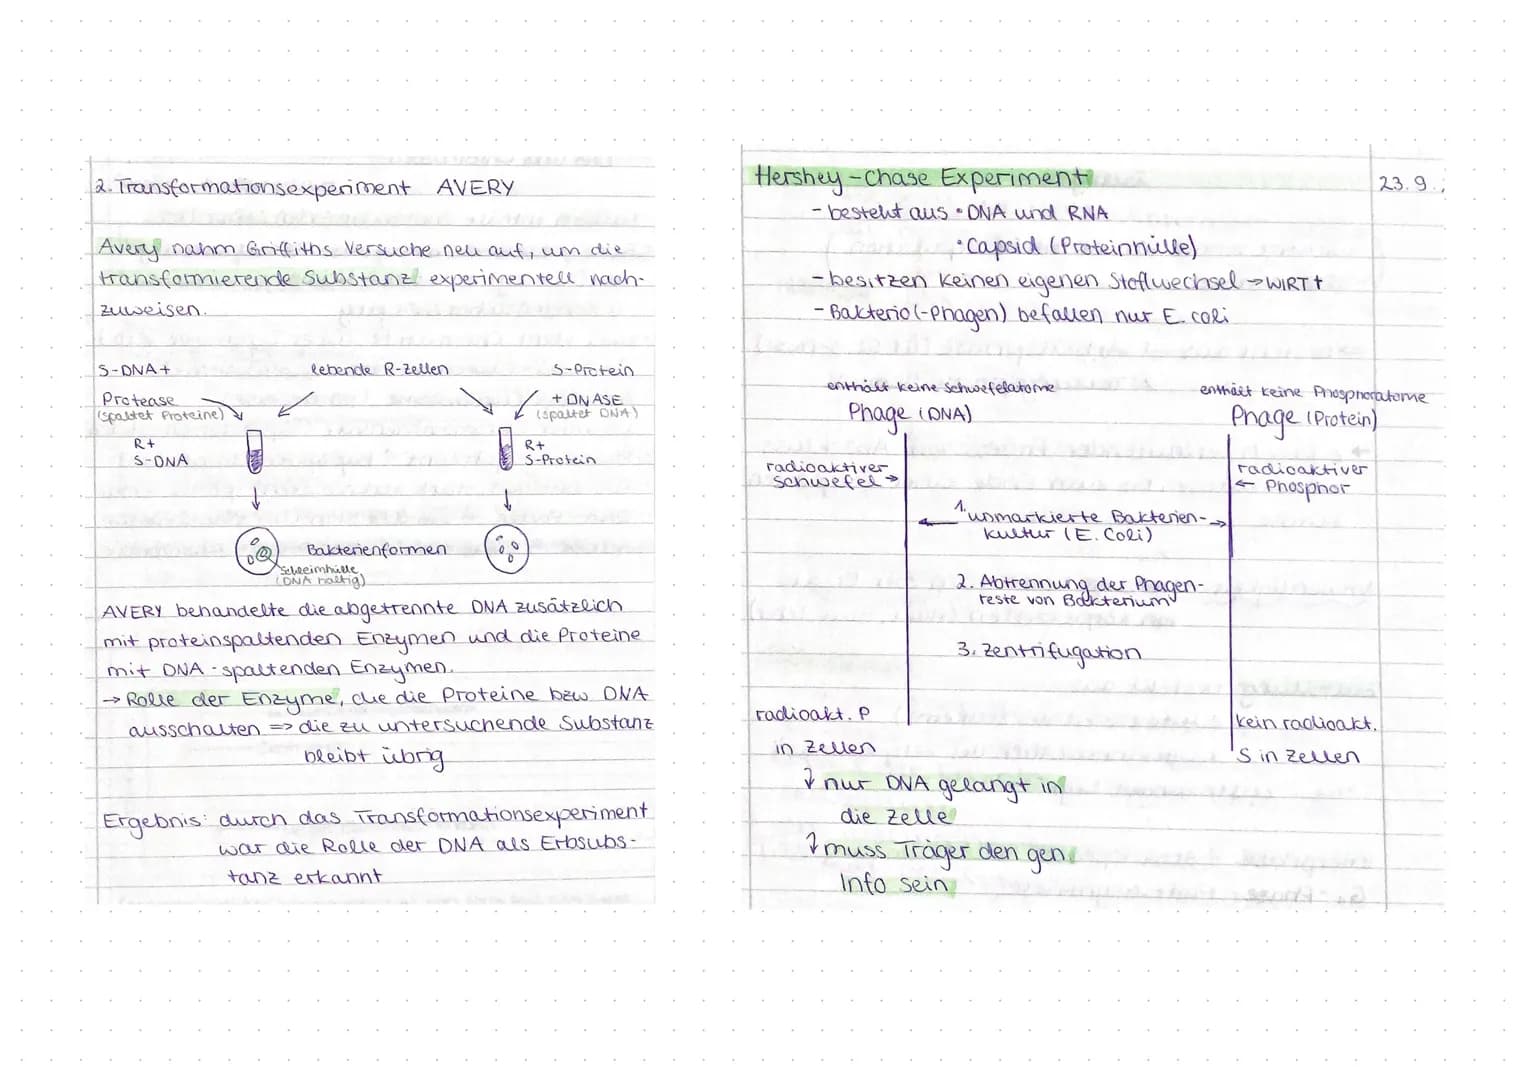 2. Transformationsexperiment AVERY
Avery nahm Griffiths Versuche neu auf, um die
transformierende Substanz experimentell nach-
zuweisen.
S-DNA +
lebende R-Zellen
S-Protein
Protease
(spaltet Proteine)
+ DNASE
(spaltet DNA)
R+
S-DNA
R+
S-Protein
Bakterienformen
Schleimhülle
(DNA haltig)
AVERY behandelte die abgetrennte DNA zusätzlich
mit proteinspaltenden Enzymen und die Proteine
mit DNA-spaltenden Enzymen.
→ Rolle der Enzyme, die die Proteine bzw DNA
ausschalten => die zu untersuchende Substanz
bleibt übrig
Ergebnis: durch das Transformationsexperiment
war die Rolle der DNA als Erbsubs-
tanz erkannt
Hershey-Chase Experiment
23.9.
- besteht aus • DNA und RNA
• Capsid (Proteinhülle)
- besitzen keinen eigenen Stoffwechsel → WIRT †
- Bakterio(-Phagen) befallen nur E. coli
enthält keine Schwefelatome
Phage (DNA)
enthält keine Phosphoratome
Phage (Protein)
radioaktiver
Schwefel →
radioaktiver
← Phosphor
1. unmarkierte Bakterien-
kultur (E. Coli)
2. Abtrennung der Phagen-
reste von Bakterium
3. Zentrifugation
radioakt. P
in Zellen
kein radioakt.
S in Zellen
↓ nur DNA gelangt in
die Zelle
↓ muss Träger den gen.
Info sein